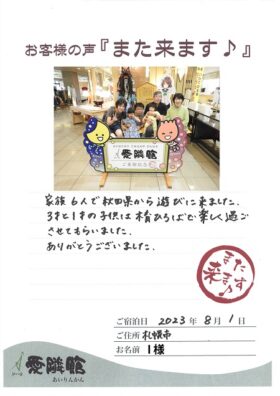 お客様の声『また来ます♪』
愛隣館
ご来館記念
家族6人で秋田県から遊びに来ました。
3才と1才の子供は木育ひろばで楽しく過ご
させてもらいました。
ありがとうございました。
また
来ます♪
ご宿泊日 2023年 8月 1日
ご住所 札幌市
お名前 I様
愛隣館
あいりんかん